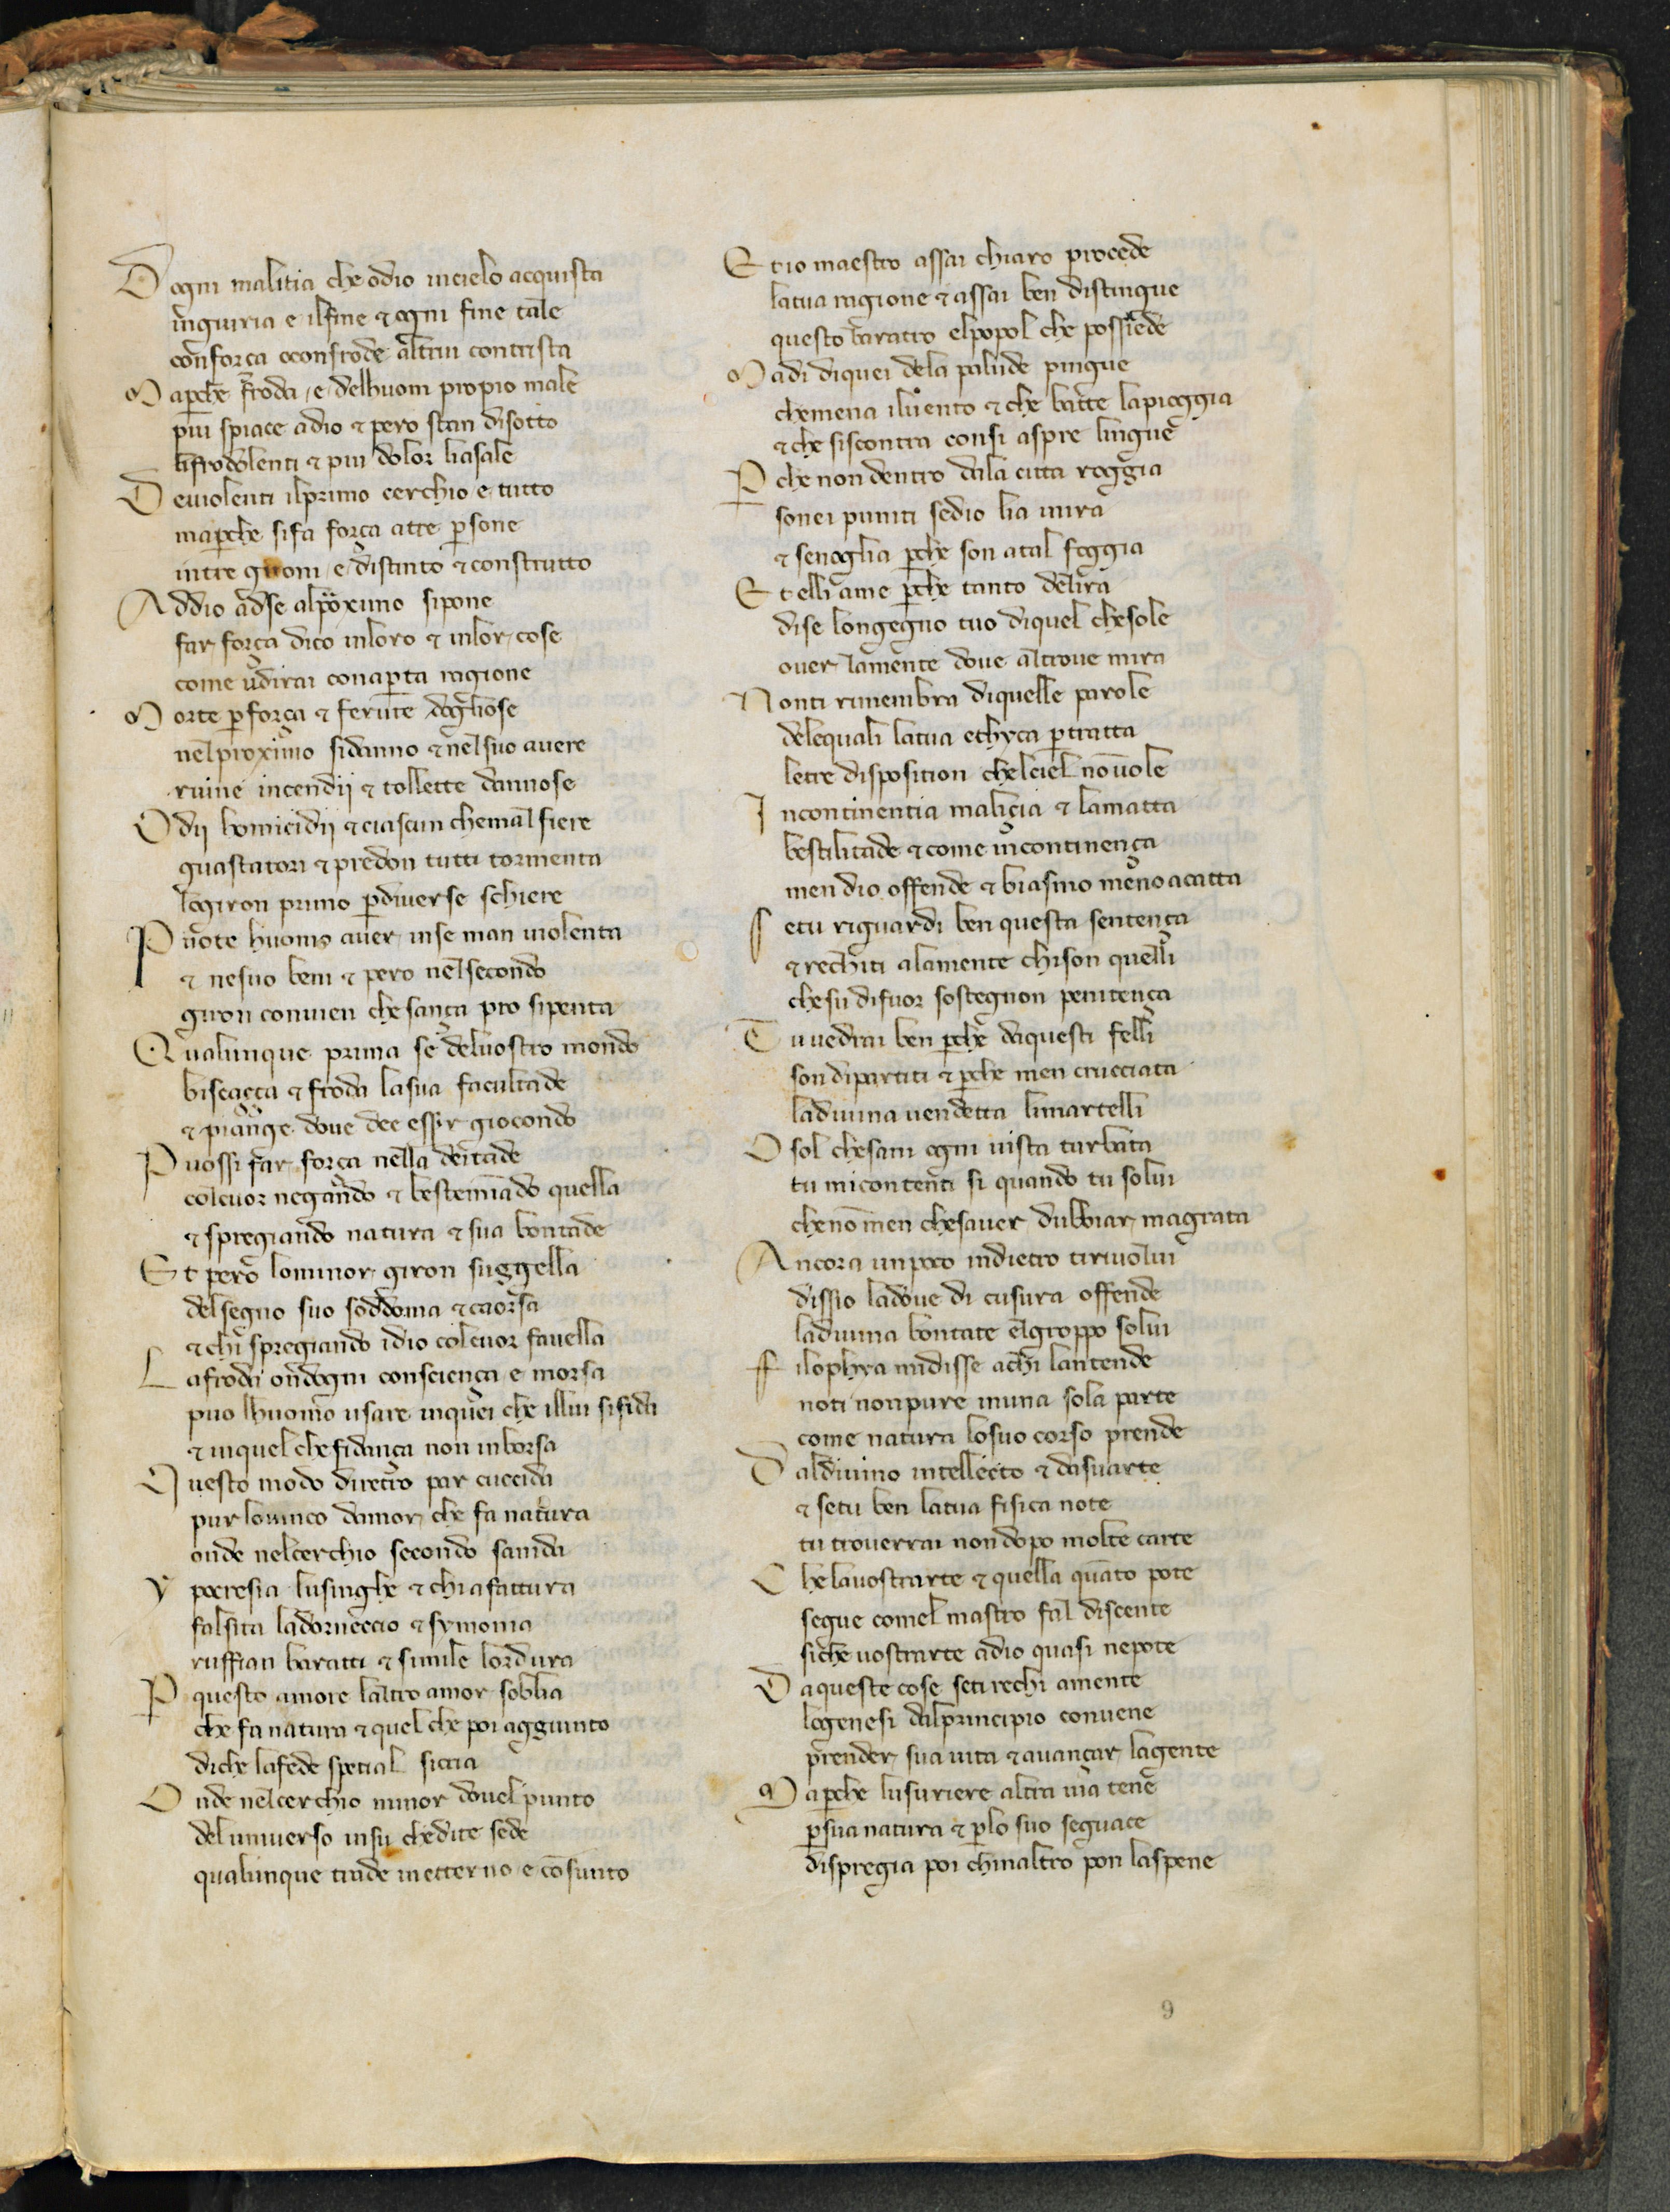 D ogni malitia che odio incielo acquista
inguiria e ilfine & ogni fine tale
conforça oconfrode altrui contrista
M aperche froda e delhuom propio male
piu spiace adio & pero stan disotto
lifrodolenti & piu dolor liasale
D euiolenti ilprimo cerchio e tutto
maperche sifa força atre persone
intre gironi e distinto & construtto
A ddio adse alproximo sipone
far força dico inloro & inlor cose
come udirai conaperta ragione
M orte perforça & ferute dogliose
nelproximo sidanno & nelsuo auere
ruine incendij & tollette dannose
O dij homicidij & ciascun chemal fiere
guastatori & predon tutti tormenta
logiron primo perdiuerse schiere
P uote huomo auer inse man uiolenta
& nesuo beni & pero nelsecondo
giron conuien che sança pro sipenta
Q ualunque priua se deluostro mondo
biscaçça & froda lasua facultade
& piange doue dee esser giocondo
P uossi far força nella deitade
colcuor negando & bestemiādo quella
& spregiando natura & sua bontade
E t pero lominor giron suggella
delsegno suo soddoma & caorsa
& chi spregiando idio colcuor fauella
L afroda ondogni consciença e morsa
puo lhuomo usare inquei che illui sifida
& inquel chefidança non inborsa
Q uesto modo diretro par cuccida
pur louinco damor che fa natura
onde nelcerchio secondo sanida
Y pocresia lusinghe & chi afattura
falsita ladorneccio & symonia
ruffian baratti & simile lordura
P questo amore laltro amor soblia
che fa natura & quel che poi aggiunto
diche lafede spetial sicria
O nde nelcerchio minor douel punto
deluniuerso insu chedite sede
qualunque trade inetterno e cōsunto
E t io maestro assai chiaro procede
latua ragione & assai ben distingue
questo baratro elpopol che possiede
M adi diquei dela palude pingue
chemena iluento & che batte lapioggia
& che siscontra consi aspre lingue
P che non dentro dala citta roggia
sonei puniti sedio lia inira
& senoglia perche son atal foggia
E t elli ame perche tanto delira
dise longegno tuo diquel chesole
ouer lamente doue altroue mira
N onti rimembra diquelle parole
delequali latua ethyca pertratta
letre disposition chelciel nōuole
I ncontinentia maliçia & lamatta
bestilitade & come incontinença
men dio offende & biasmo meno acatta
S etu riguardi ben questa sentença
& rechiti alamente chison quelli
chesu difuor sostegnon penitença
T u uedrai ben perche daquesti felli
son dipartiti & perche men crucciata
ladiuina uendetta limartelli
O sol chesani ogni uista turbata
tu micontenti si quando tu solui
chenōmen chesauer dubbiar magrata
A ncora unpoco indietro tiriuolui
dissio ladoue di cusura offende
ladiuina bontate elgroppo solui
F ilophya midisse achi lantende
noti nonpure inuna sola parte
come natura losuo corso prende
D aldiuino intellecto & dasuarte
& setu ben latua fisica note
tu trouerrai nondopo molte carte
C he lauostrarte & quella quāto pote
segue comel mastro fal discente
siche uostrarte adio quasi nepote
D aqueste cose seti rechi amente
logenesi dalprincipio conuene
prender sua uita & auançar lagente
M aperche lusuriere altra uia tene
persua natura & perlo suo seguace
dispregia poi chinaltro pon laspene
9